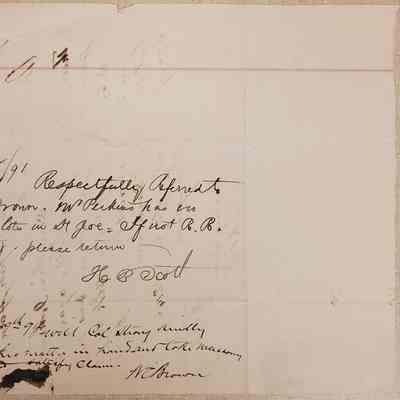 /91
Respectfully Referred to
Brown. Mr Perkins has on
lots in St Joe = If not R. R.
please return
H C Scott
Will Col Strong kindly
matter in hand and take necessary
satisfy Claim.
Brown